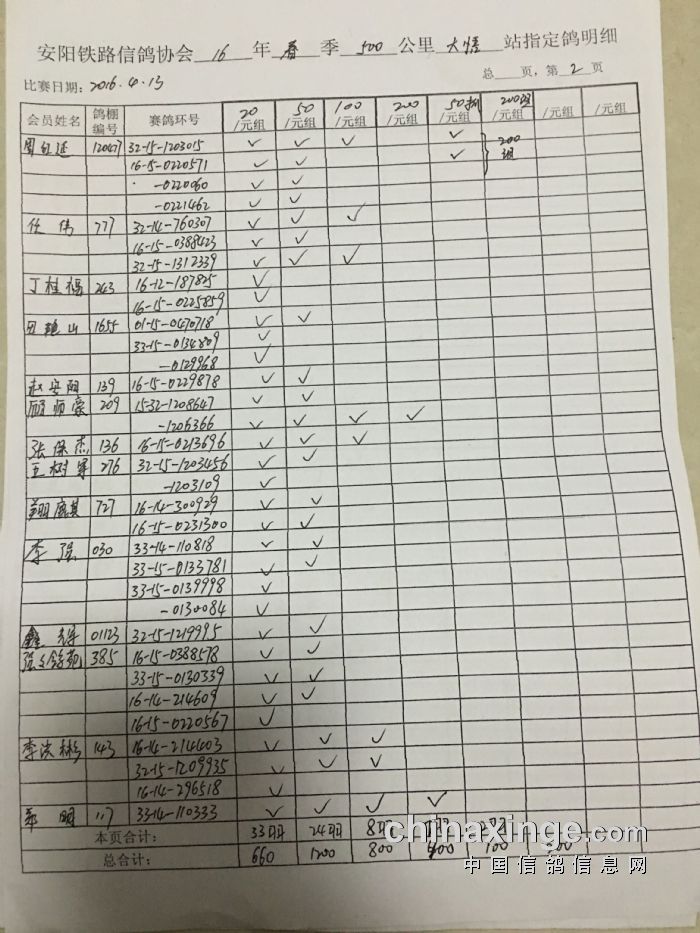 安阳铁路信鸽协会 16 年 春 季 500 公里 大悟 站指定鸽明细
比赛日期: 2016.4.13 总 页，第 2 页
会员姓名 鸽棚编号 赛鸽环号 20/元组 50/元组 100/元组 200/元组 50/元组 200/元组 /元组 /元组
12047 32-15-1203015 ✓ ✓ ✓ ✓ 200
16-15-0220571 ✓ ✓ ✓ 组
-0220060 ✓ ✓
-0221462 ✓ ✓
任伟 777 32-14-760307 ✓ ✓ ✓
16-15-0388423 ✓ ✓
32-15-1312339 ✓ ✓ ✓
丁桂福 243 16-12-187825 ✓
16-15-0225859 ✓
山 1655 01-15-0470718 ✓ ✓
33-15-0134809 ✓
-0129968 ✓
赵安阳 139 16-15-0229878 ✓ ✓
顾师豪 209 15-32-1208647 ✓ ✓
-1206366 ✓ ✓ ✓ ✓
张保杰 136 16-15-0213696 ✓ ✓ ✓
王树军 276 32-15-1203456 ✓ ✓
-1203109 ✓
727 16-14-300929 ✓ ✓
16-15-0231300 ✓ ✓
李强 030 33-14-110818 ✓ ✓
33-15-0133781 ✓ ✓
33-15-0139998 ✓
-0130084 ✓
鑫 01123 32-15-1219995 ✓ ✓
385 16-15-0388578 ✓ ✓
33-15-0130339 ✓ ✓
16-14-214609 ✓ ✓
16-15-0220567 ✓
李洪彬 143 16-14-214403 ✓ ✓ ✓
32-15-1209935 ✓ ✓ ✓
16-14-296518 ✓
明 117 33-14-110333 ✓ ✓ ✓ ✓
本页合计： 33羽 24羽 8羽
总合计： 660 1200 800 400 100 200
chinaxinge.com
中国信鸽信息网